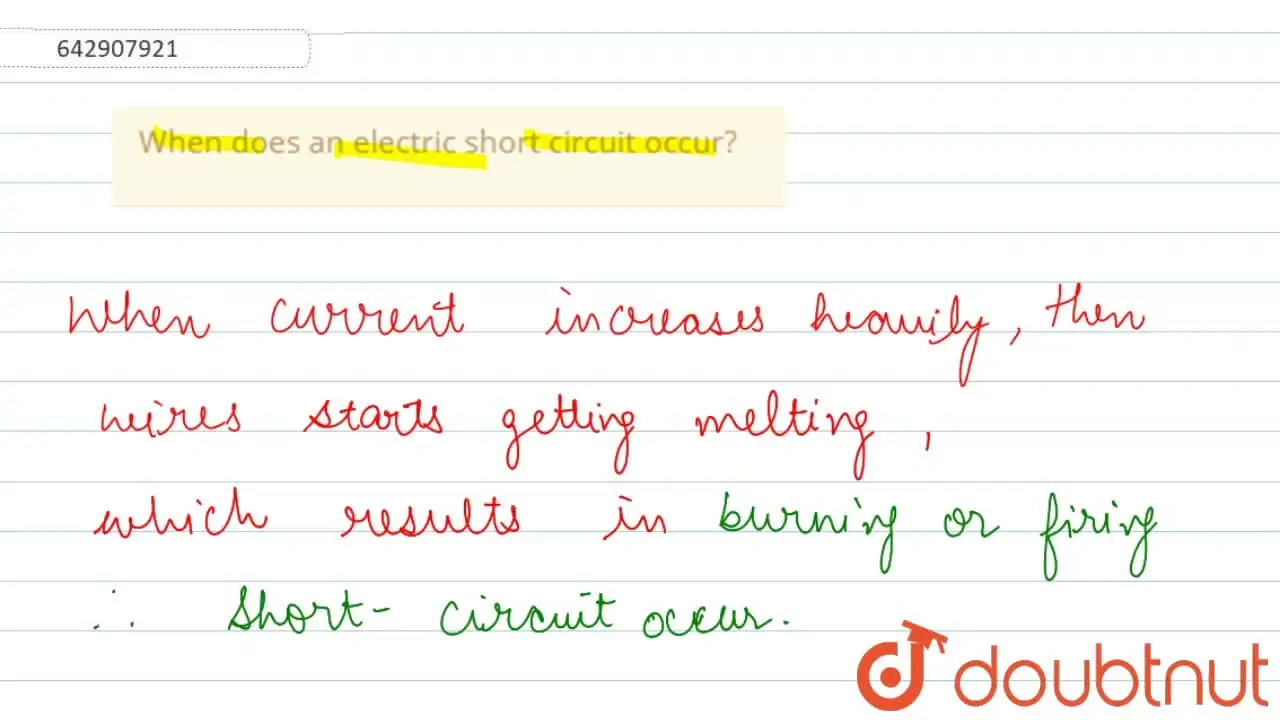 642907921
When does an electric short circuit occur?
When current increases heavily, then
wires starts getting melting,
which results in burning or firing
∴ Short- circuit occur.
doubtnut